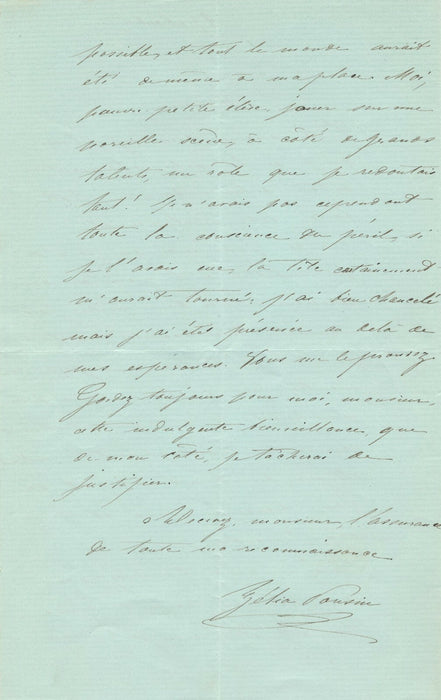 possible, et tout le monde aurait
été de même à ma place. Moi,
pauvre petite élève, jouer sur une
pareille scène, à côté de grands
talents, un rôle que je redoutais
tant! Je n'avais pas cependant
toute la conscience du péril, si
je l'avais eue, la tête certainement
m'aurait tourné, j'ai bien chancelé
mais j'ai été préservée au delà de
mes espérances. Vous me le prouvez.
Gardez toujours pour moi, monsieur,
cette indulgente bienveillance, que
de mon côté, je tâcherai de
justifier.
Recevez, monsieur, l'assurance
de toute ma reconnaissance
Zélia Ponsin